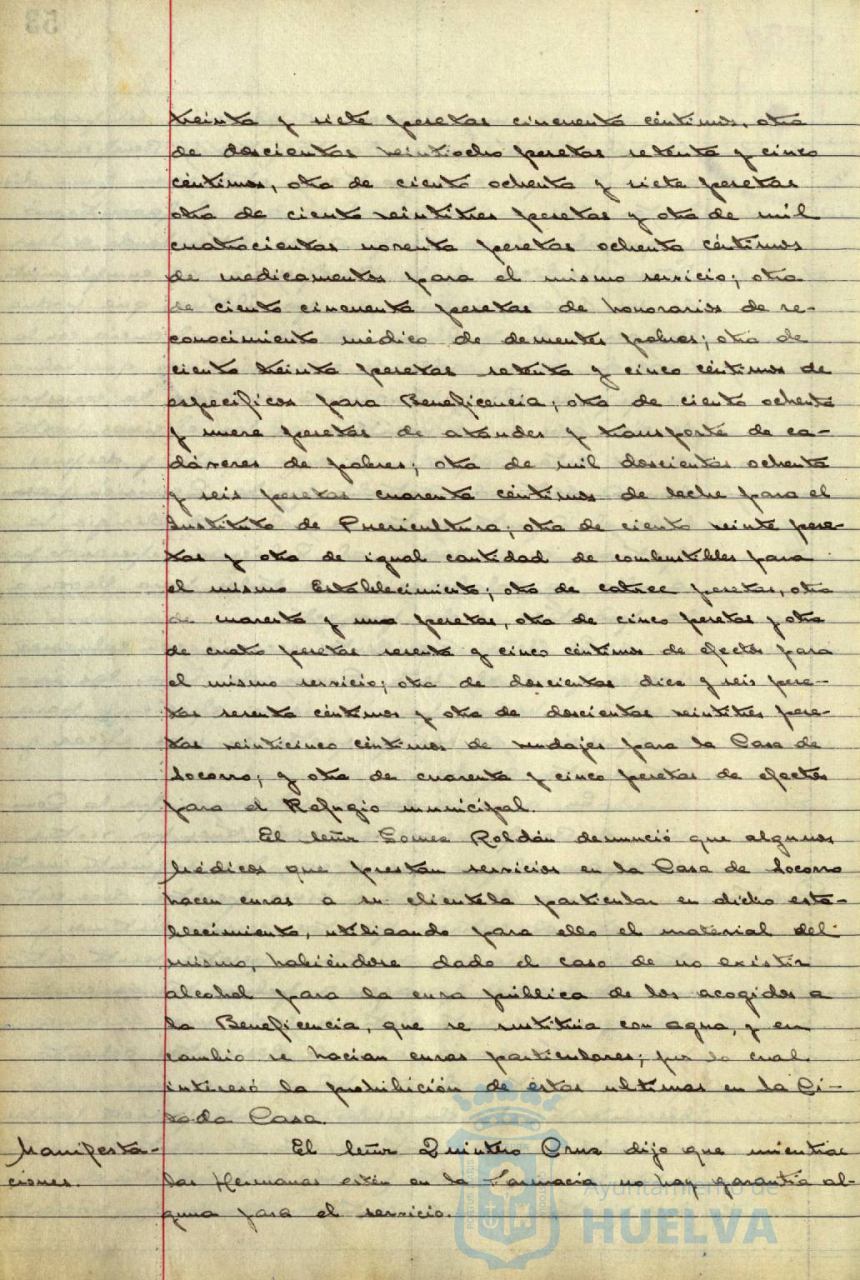 53
treinta y siete pesetas cincuenta céntimos, otra
de doscientas veintiocho pesetas setenta y cinco
céntimos, otra de ciento ochenta y siete pesetas
otra de ciento veintitres pesetas y otra de mil
cuatrocientas noventa pesetas ochenta céntimos
de medicamentos para el mismo servicio; otra
de ciento cincuenta pesetas de honorarios de re-
conocimiento médico de dementes pobres; otra de
ciento treinta pesetas setenta y cinco céntimos de
específicos para Beneficencia; otra de ciento ochenta
y nueve pesetas de ataudes y transporte de ca-
dáveres de pobres; otra de mil doscientas ochenta
y seis pesetas cuarenta céntimos de leche para el
Instituto de Puericultura; otra de ciento veinte pese-
tas y otra de igual cantidad de combustibles para
el mismo Establecimiento; otra de catorce pesetas, otra
de cuarenta y una pesetas, otra de cinco pesetas y otra
de cuatro pesetas sesenta y cinco céntimos de efectos para
el mismo servicio; otra de doscientas diez y seis pese-
tas sesenta céntimos y otra de doscientas veintitres pese-
tas veinticinco céntimos de vendajes para la Casa de
Socorro; y otra de cuarenta y cinco pesetas de efectos
para el Refugio municipal.
El Señor Gomez Roldán denunció que algunos
Médicos que prestan servicios en la Casa de Socorro
hacen curas a su clientela particular en dicho esta-
blecimiento, utilizando para ello el material del
mismo, habiéndose dado el caso de no existir
alcohol para la cura pública de los acogidos a
la Beneficencia, que se sustituia con agua, y en
cambio se hacian curas particulares; por lo cual
interesó la prohibición de éstas ultimas en la Ci-
tada Casa.
Manifesta-
ciones.
El Señor Quintero Cruz dijo que mientras
las Hermanas estén en la Farmacia no hay garantía al-
guna para el servicio.
Ayuntamiento de
HUELVA